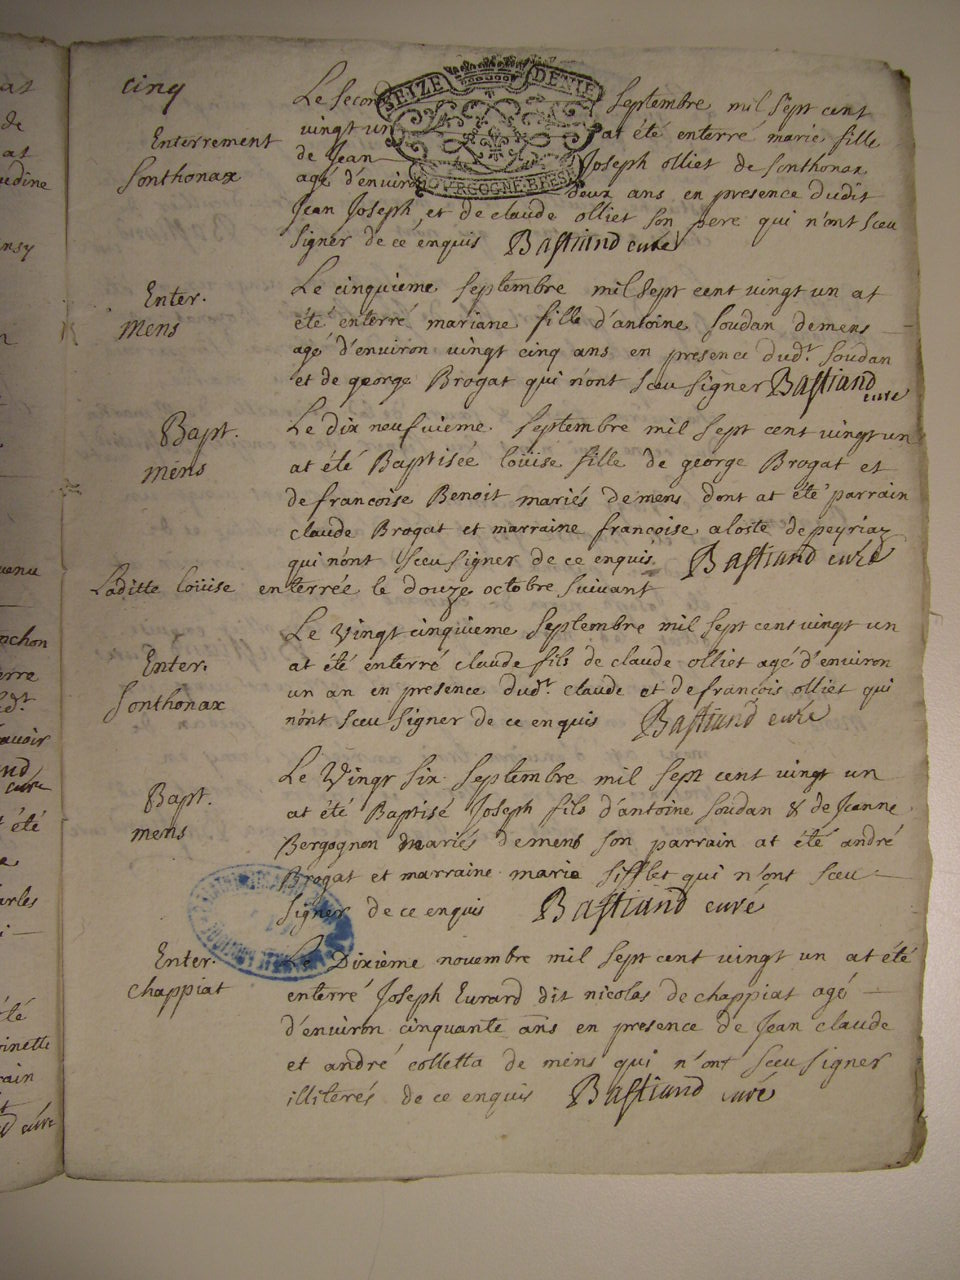 cinq
SEIZE DENIE
BOVRGOGNE·BRESSE
Enterrement
Sonthonax
Le second Septembre mil sept cent
vingt un at été enterré marie fille
de Jean Joseph olliet de Sonthonax
agé d'environ deux ans en presence dudit
Jean Joseph et de claude olliet son pere qui n'ont sceu
signer de ce enquis Bastiand curé
Enter.
Mens
Le cinquieme septembre mil sept cent vingt un at
été enterré mariane fille d'antoine Soudan demens
agé d'environ vingt cinq ans en presence dudt. Soudan
et de george Brogat qui n'ont sceu signer Bastiand
curé
Bapt.
mens
Le dix neufvieme septembre mil sept cent vingt un
at été Baptisée loüise fille de george Brogat et
de francoise Benoit mariés demens dont at été parrain
claude Brogat et marraine francoise aloste de peyriaz
qui n'ont sceu signer de ce enquis Bastiand curé
Laditte loüise enterrée le douze octobre suivant
Enter.
Sonthonax
Le Vingt cinquieme septembre mil sept cent vingt un
at été enterré claude fils de claude olliet agé d'environ
un an en presence dudt. claude et de francois olliet qui
n'ont sceu signer de ce enquis Bastiand curé
Bapt.
mens
Le Vingt six septembre mil sept cent vingt un
at été Baptisé Joseph fils d'antoine Soudan & de Jeanne
Bergognon mariés demens son parrain at été andré
Brogat et marraine marie sifflet qui n'ont sceu
signer de ce enquis Bastiand curé
Enter.
chappiat
Le Dixième novembre mil sept cent vingt un at été
enterré Joseph Evrard dit nicolas de chappiat agé
d'environ cinquante ans en presence de Jean claude
et andré colletta de mens qui n'ont sceu signer
illiterés de ce enquis Bastiand curé